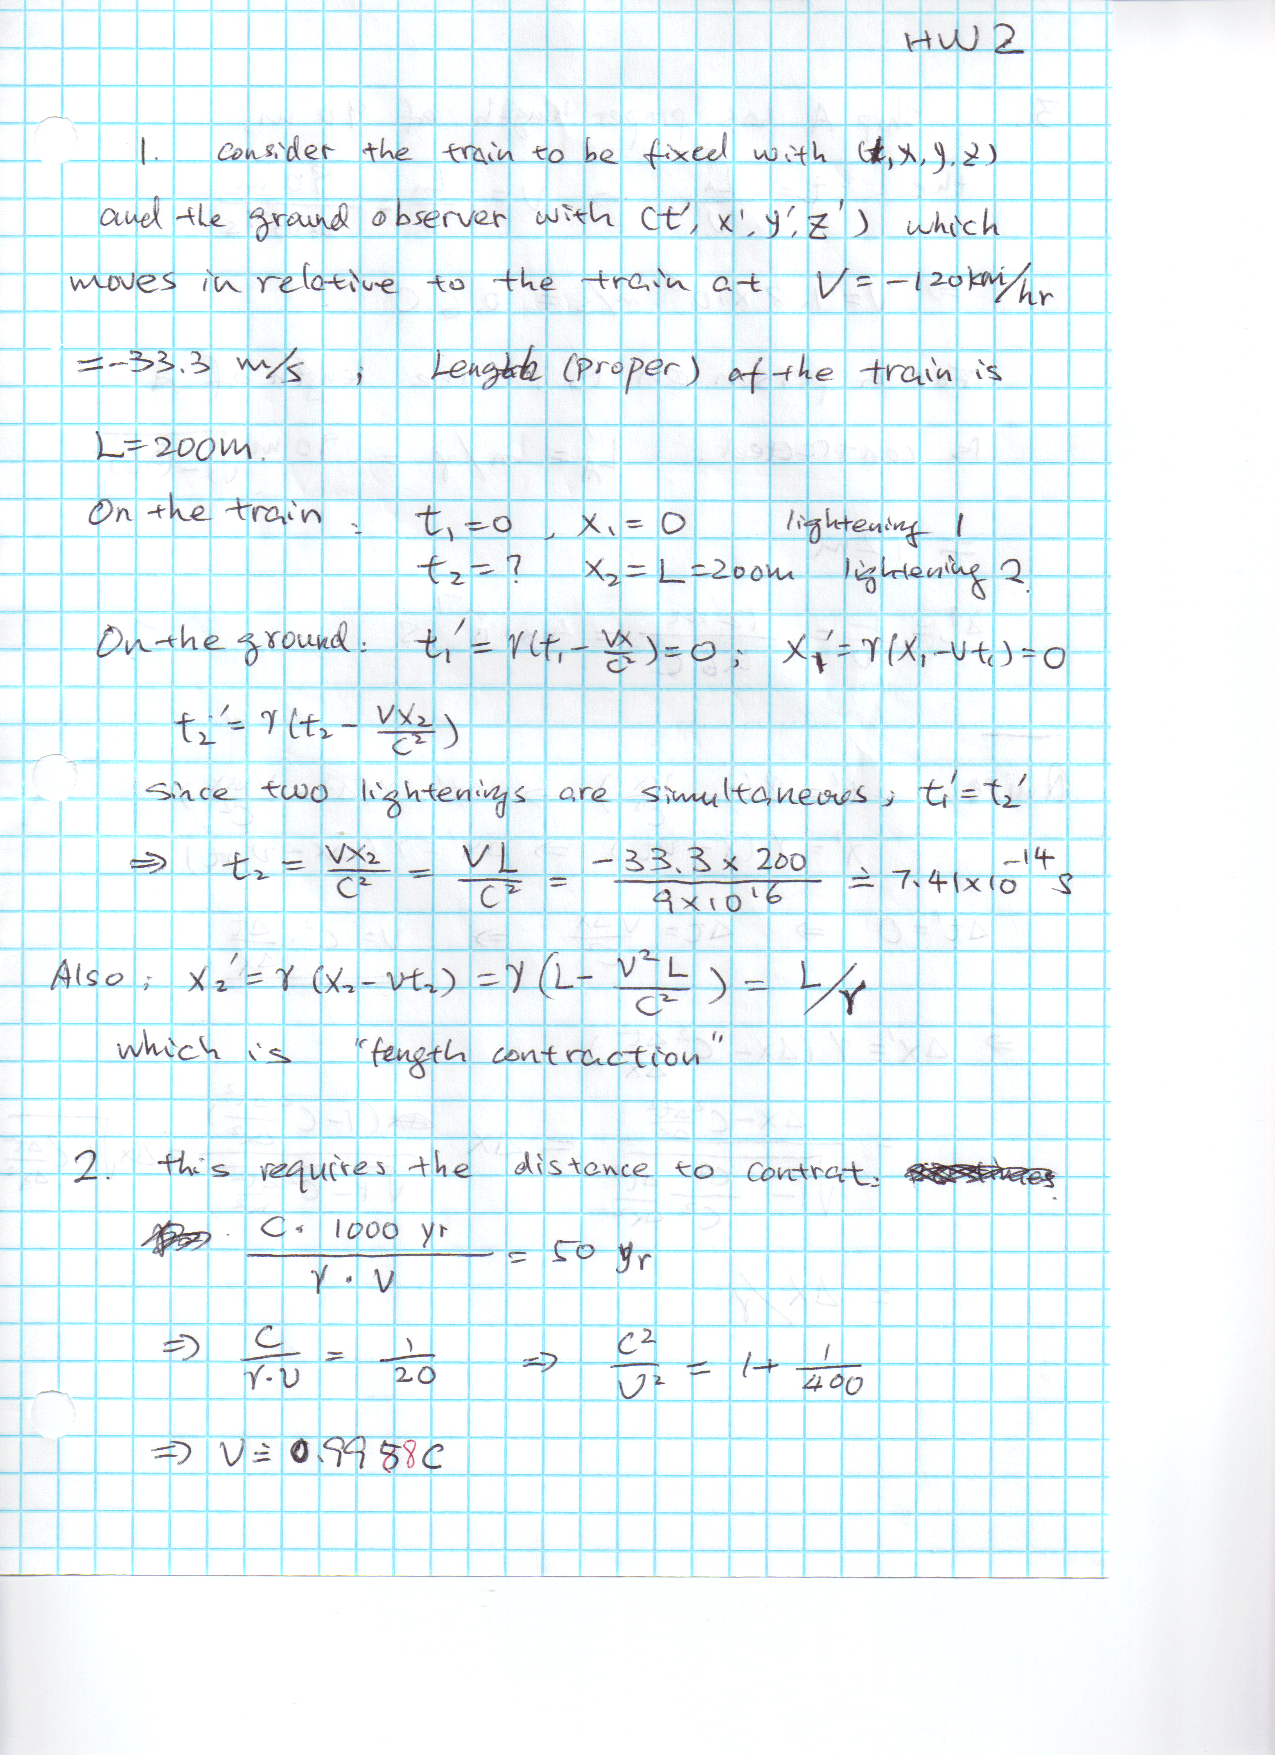 HW2
1. Consider the train to be fixed with (t, x, y, z)
and the ground observer with (t', x', y', z') which
moves in relative to the train at V = -120km/hr
=-33.3 m/s ; Length (proper) of the train is
L=200m.
On the train : t₁=0 , x₁=0 lightening 1
t₂=? x₂=L=200m lightening 2.
On the ground: t₁'=γ(t₁-vx/c²)=0; x₁'=γ(x₁-vt₁)=0
t₂'=γ(t₂-vx₂/c²)
Since two lightenings are simultaneous, t₁'=t₂'
⇒ t₂ = vx₂/c² = VL/c² = -33.3×200/9×10¹⁶ ≐ 7.41×10⁻¹⁴ s
Also; x₂'=γ(x₂-vt₂)=γ(L-v²L/c²)= L/γ
which is "length contraction"
2. this requires the distance to contrat:
C·1000 yr/γ·V = 50 yr
⇒ C/γ·v = 1/20 ⇒ C²/v² = 1+1/400
⇒ V≐0.9988C